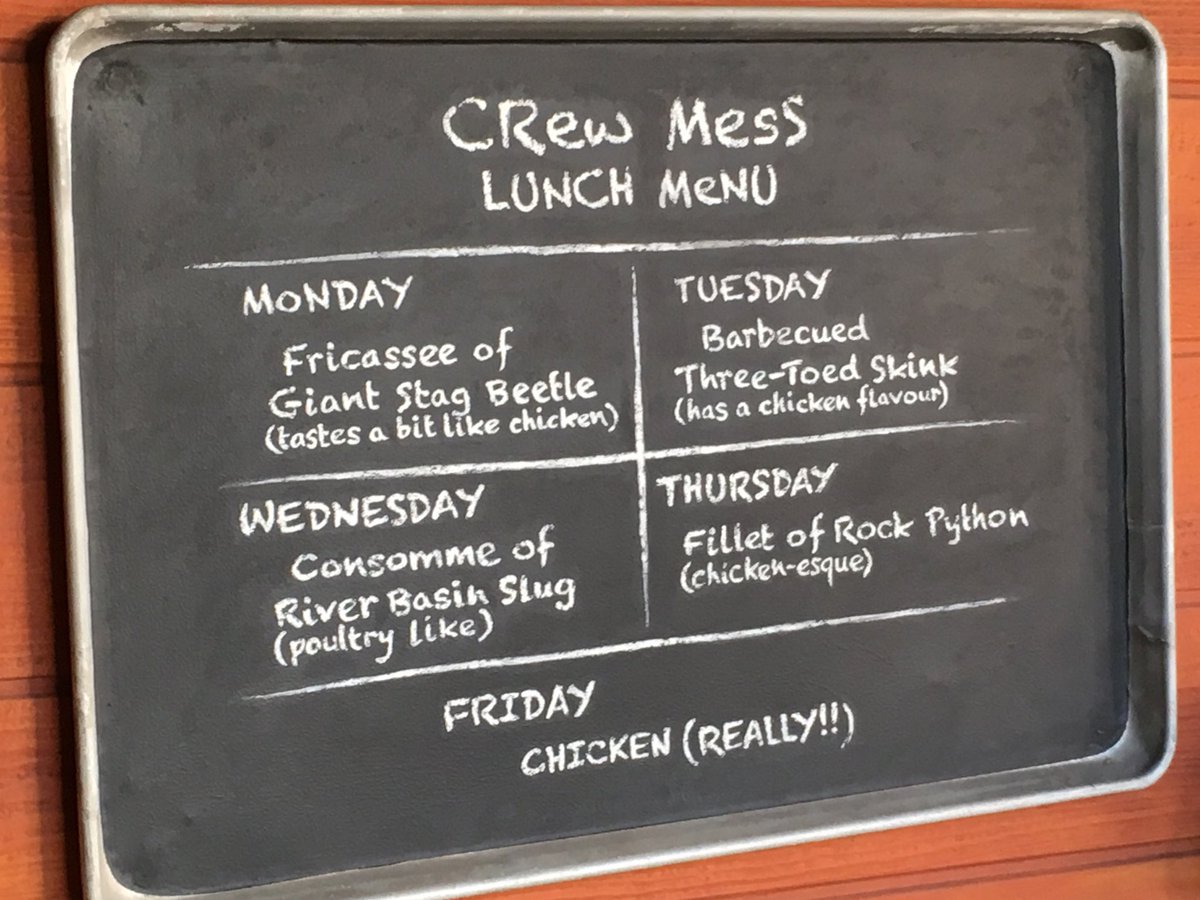 CRew MesS
LUNCH MeNU
MoNDAY
Fricassee of
Giant Stag Beetle
(tastes a bit like chicken)
TUESDAY
Barbecued
Three-Toed Skink
(has a chicken flavour)
WEDNESDAY
Consomme of
River Basin Slug
(poultry like)
THURSDAY
Fillet of Rock Python
(chicken-esque)
FRIDAY
CHICKEN (REALLY!!)